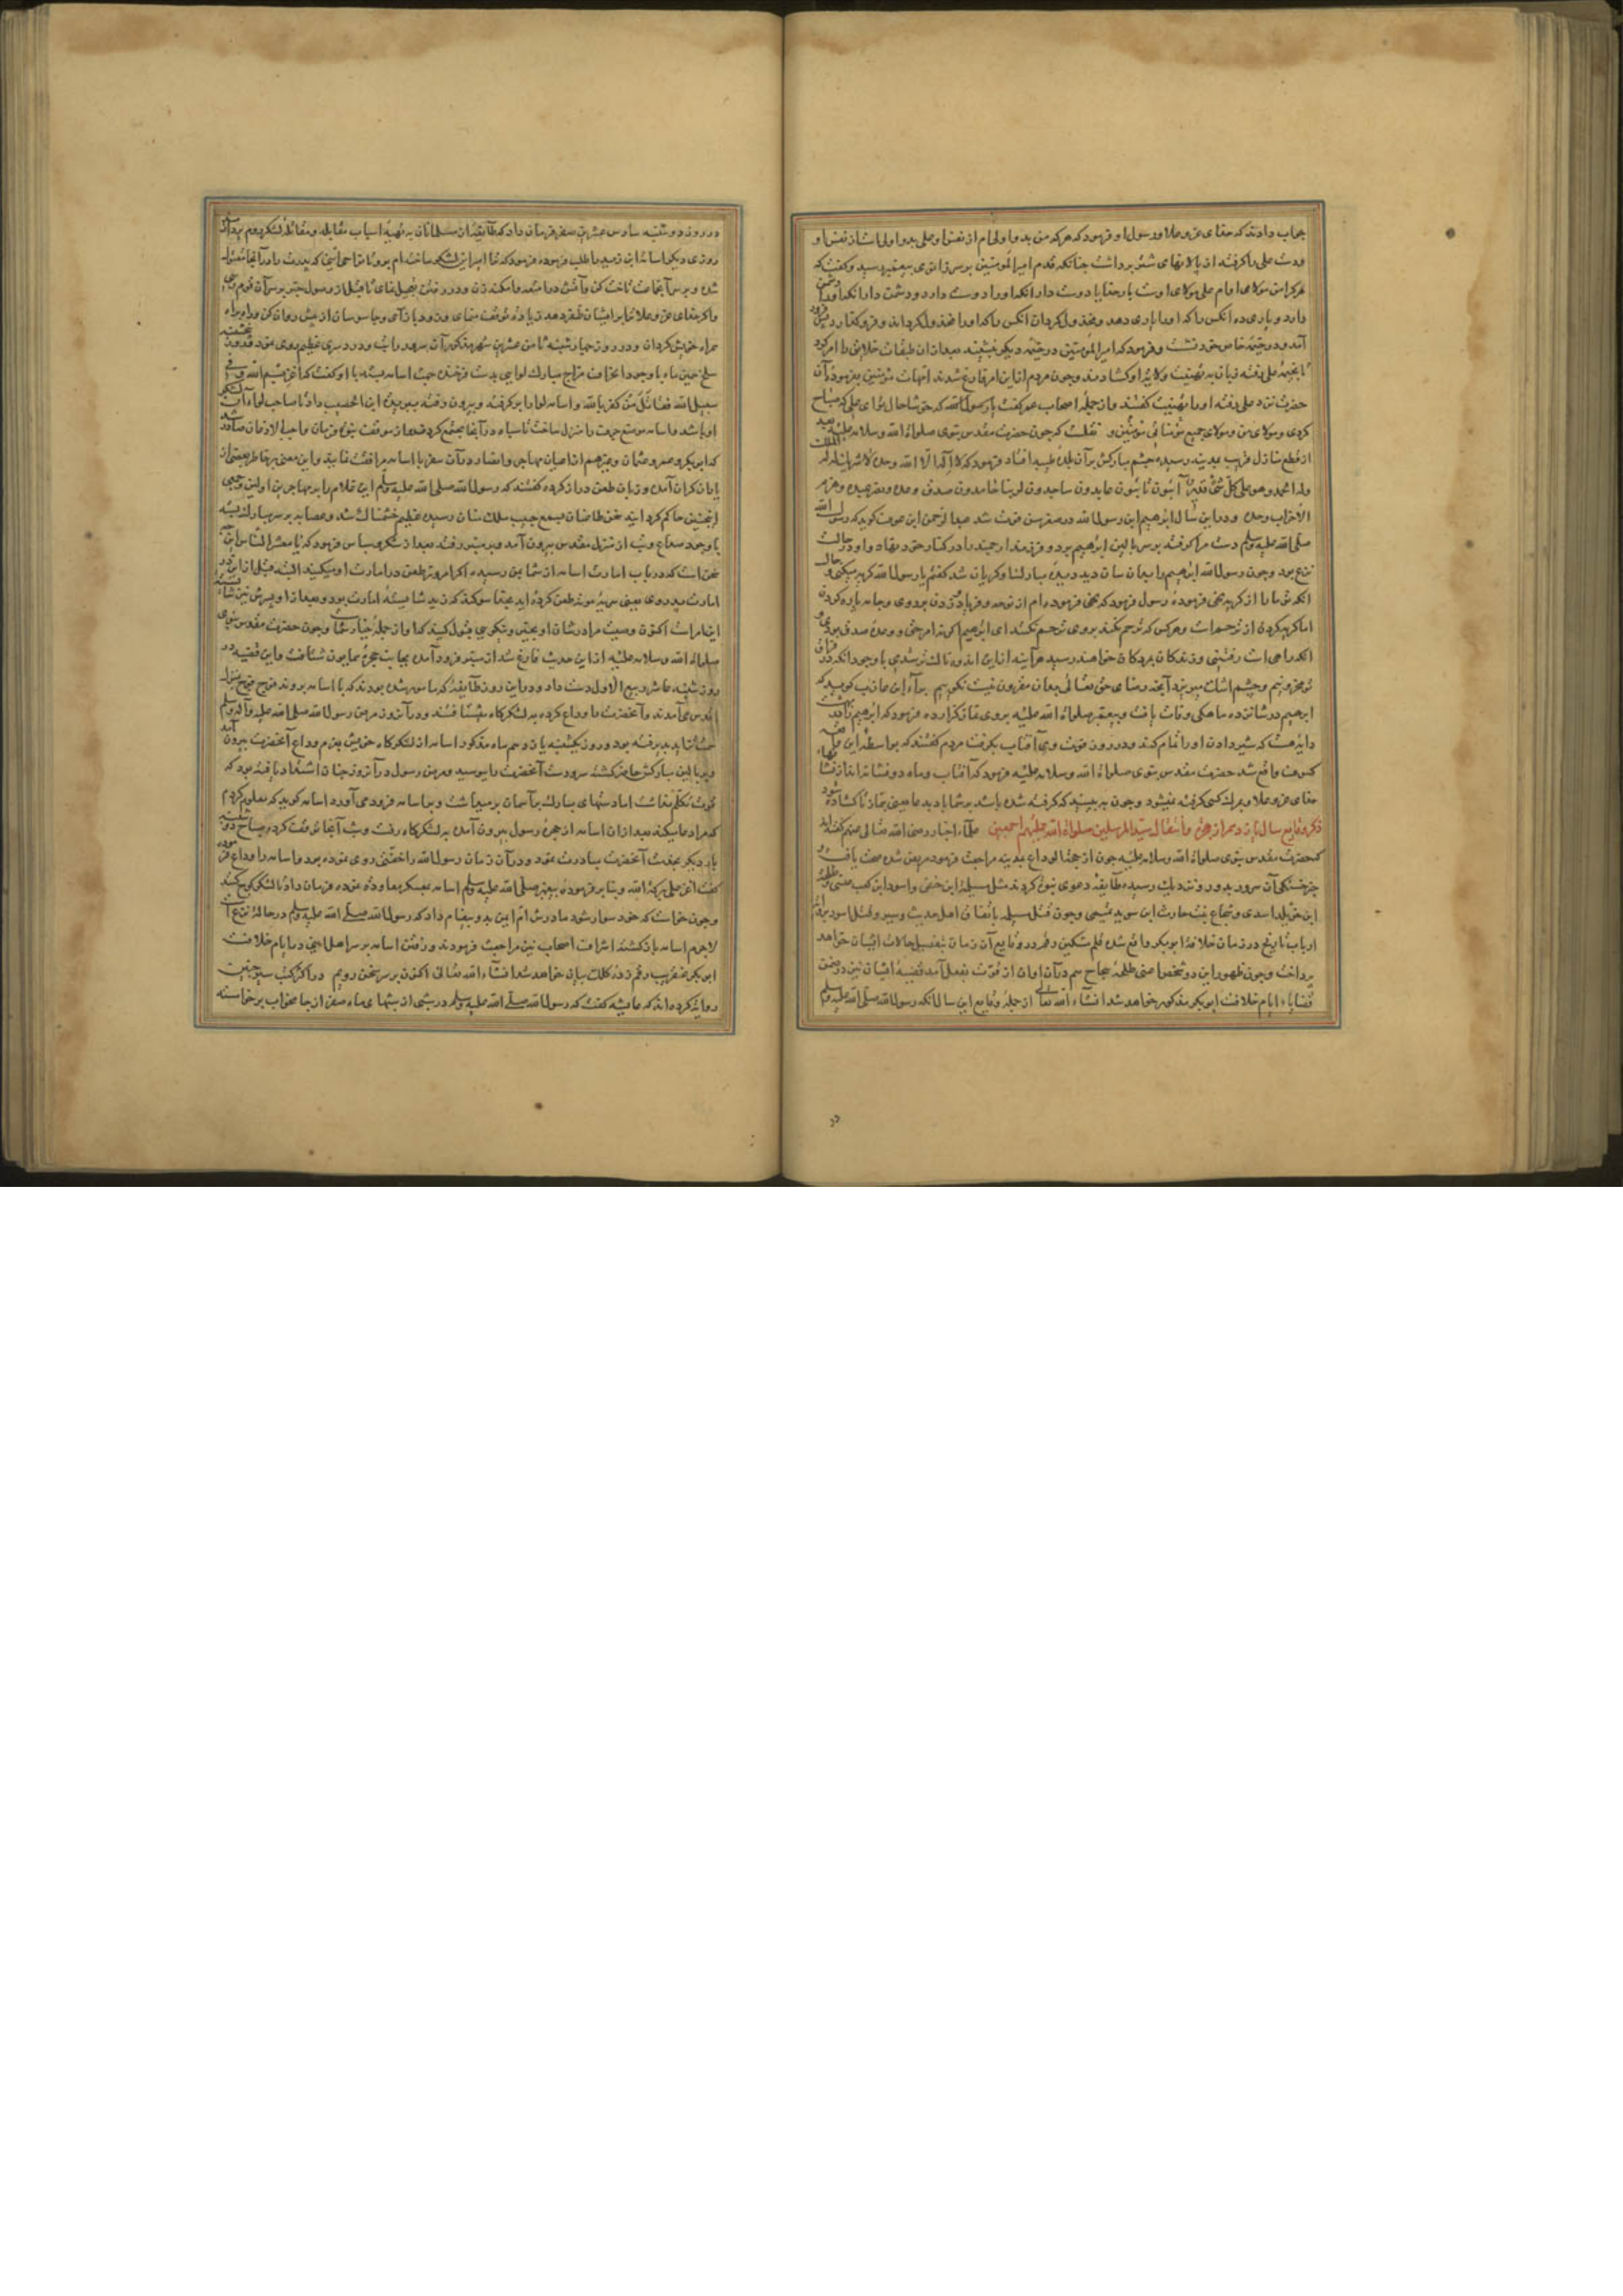 بجواب دادند که خدای عز و علا و رسول او فرمود که هر که من بدو اولی ام از نفس او علی بدو اولی است از نفس او
و دست علی را گرفته از پالانهای شتر برداشت چنانکه قدم امیرالمومنین بر سر زانوی پیغمبر رسید و گفت که
هر که را من مولای اوام علی مولای اوست بار خدایا دوست دار انکه او را دوست دارد و دشمن دار انکه او را دشمن
دارد و یاری ده انکس را که او را یاری دهد و مخذول گردان انکس را که او را مخذول گرداند و فرو گذارد
آمد و در خیمه خاص خود نشست و فرمود که امیرالمومنین در خیمه دیگر بنشیند بعد از ان طبقات خلایق را امر کرد
تا بخیمه علی رفته زبان به تهنیت او کشادند و چون مردم از این امر فارغ شدند امهات مومنین بفرموده آن
حضرت نزد علی رفته او را تهنیت گفتند و از جمله اصحاب عمر گفت یا رسول الله که خوشا حال تو ای علی که صباح
کردی و مولای من و مولای جمیع مومنان و مومنین و نقلست که چون حضرت مقدس نبوی صلواة الله و سلامه علیه بعد
از قطع منازل قریب بمدینه رسیده چشم مبارکش بر آن بلده طیبه افتاد فرمود که لا اله الا الله وحده لا شریک له له الملک
وله الحمد وهو علی کل شی قدیر آئبون تائبون عابدون ساجدون لربنا حامدون صدق وعده ونصر عبده وهزم
الاحزاب وحده و در این سال ابرهیم ابن رسول الله در صغر سن فوت شد عبدالرحمن ابن عوف گوید که رسول الله
صلی الله علیه وسلم دست مرا گرفته بر سر بالین ابرهیم برد و فرزند ارجمند را در کنار خود نهاد و او در حالت
نزع بود و چون رسول الله ابرهیم را بدان سان دید دیده مبارکش گریان شد گفتم یا رسول الله گریه میکنی و حال
انکه تو ما را از گریه نهی فرموده رسول فرمود که نهی فرموده ام از نوحه و فریاد زدن بر روی و جامه پاره کردن
اما گریه کردن از ترحم است و هر کس که ترحم نکند بر وی ترحم نکنند ای ابرهیم اگر نه امر حق و وعده صدق بودی و
انکه راهی است رفتنی و زندگان بمردگان خواهند رسید هر آینه از این اندوهناک تر شدی با وجود انکه در فراق
تو محزونیم و چشم اشک میریزد آنچه رضای حق تعالی بدان مقرون نیست نگوییم براء ابن عازب گوید که
ابرهیم در شانزده ماهگی وفات یافت و پیغمبر صلواة الله علیه بر وی نماز گزارده فرمود که ابرهیم را در بهشت
دایه هست که شیر دادن او را تمام کند و در روز فوت وی آفتاب بگرفت مردم گفتند که بواسطه این واقعه
کسوف واقع شد حضرت مقدس نبوی صلواة الله وسلامه علیه فرمود که آفتاب و ماه دو نشانه اند از نشانهاء
خدای عز و علا و بمرگ کسی گرفته نمیشود و چون به بینید که گرفته شده باشد بر شما باد بدعا یعنی نماز تا کشاده شود
ذکر وقایع سال یازدهم از هجرة و انتقال سید المرسلین صلواة الله علیهم اجمعین علماء اخبار رضی الله تعالی عنهم گفته اند
که حضرت مقدس نبوی صلواة الله وسلامه علیه چون از حجة الوداع بمدینه مراجعت فرمود مریض شده صحت یافت و
خبر خستگی آن سرور بدور و نزدیک رسیده طایفه دعوی نبوت کردند مثل مسیلمه ابن حنفی و اسود ابن کعب عنسی و طلیحه
ابن خویلد اسدی و سجاح بنت حارث ابن سوید تمیمی و چون قتل مسیلمه باتفاق اهل حدیث و سیر و قتل اسود بروایت
ارباب تاریخ در زمان خلافة ابوبکر واقع شده قلم مشکین رقم در وقایع آن زمان بتفصیل حالات ایشان خواهد
پرداخت و چون ظهور این دو شخص اعنی طلیحه و سجاح هم در آن اوان از قوت بفعل آمد قضیه ایشان نیز در ضمن
قضایاء ایام خلافت ابوبکر مذکور خواهد شد انشاء الله تعالی از جمله وقایع این سال انکه رسول الله صلی الله علیه وسلم
در روز دوشنبه سادس عشرین صفر فرمان داد که طایفه از مسلمانان به تهیه اسباب مقابله و مقاتله لشکر روم پردازند
روزی دیگر اسامة ابن زید را طلب فرموده فرمود که ترا امیر این لشکر ساخته ام برو تا نواحی که پدرت را در آنجا مقتول
شده و بر سر آنجماعت تاخت کن و آتش در
و اگر خدای عز و علا ترا بر ایشان ظفر دهد زیاده توقف منمای و زود باز آی و جاسوسان از پیش روان کن و دلیل راه
همراه خویش گردان و در روز چهارشنبه ثامن عشرین شهر مذکور آن سرور را تب و درد سری عظیم روی نمود
سلخ همین ماه با وجود انحراف مزاج مبارک لوایی بدست فرخنده جهت اسامه بسته با او گفت که اغز بسم الله وفی
سبیل الله فقاتل من کفر بالله و اسامه لوا را برگرفته و بیرون رفته ببریدة ابن الحصیب داد تا صاحب لواء آن لشکر
او باشد و اسامه موضع جرف را منزل ساخت تا سپاه در آنجا مجتمع گردند بعد از موقف نبوت فرمان واجب الاذعان صادر شد
که ابوبکر و عمر و عثمان و غیرهم از اعیان مهاجر و انصار در آن سفر با اسامه مرافقت نمایند و این معنی بر خاطر بعضی از
یاران گران آمده و زبان طعن دراز کرده گفتند که رسول الله صلی الله علیه وسلم این غلام را بر مهاجرین اولین
اینچنین حاکم گردانید سخن طاعنان بسمع حبیب ملک منان رسیده عظیم خشمناک شد و عصابه بر سر مبارک بسته
با وجود صداع و تب از منزل مقدس بیرون آمد و بر منبر رفته بعد از شکر و سپاس فرمود که یا معشر الناس این چه
سخن است که در باب امارت اسامه از شما بمن رسیده اگر امروز طعن در امارت او میکنید البته قبل از این در
امارت پدر وی یعنی سریه موته طعن کرده اید بخدا سوگند که زید شایسته امارت بود و بعد از او پسرش نیز شایسته
این امر است اکنون وصیت مرا در شان او بخیر و نیکویی قبول کنید که او از جمله خیار شماست و چون حضرت مقدس نبوی
صلواة الله وسلامه علیه از این حدیث فارغ شد از منبر فرود آمده بجانب حجره همایون شتافت و این قضیه در
روز شنبه عاشر ربیع الاول دست داد و در این روز طایفه که مامور شده بودند که با اسامه بروند فوج فوج بمنزل
اقدس می آمدند و آنحضرت را وداع کرده به لشکرگاه میشتافتند و در آن روز مرض رسول الله صلی الله علیه وآله وسلم
پذیرفته بود و روز یکشنبه یازدهم ماه مذکور اسامه از لشکرگاه خویش بعزم وداع آنحضرت بیرون آمد
و بر بالین مبارکش حاضر گشته سر و دست آنحضرت را بوسید و مرض رسول در آن روز چنان اشتداد یافته بود که
قوت تکلم نداشت اما دستهای مبارک بر آسمان بر میداشت و بر اسامه فرود می آورد اسامه گوید که معلوم کردم
که مرا دعا میکند بعد از ان اسامه از حجره رسول بیرون آمده به لشکرگاه رفت و شب آنجا توقف کرده صباح دوشنبه
بار دیگر بخدمت آنحضرت مبادرت نمود و در آن زمان رسول الله را خفتی روی نموده بود و اسامه را وداع فرموده
گفت اغز علی برکة الله و بنا بر فرموده پیغمبر صلی الله علیه وسلم اسامه بمعسکر معاودة نموده فرمان داد تا لشکر کوچ کنند
و چون خواست که خود سوار شود مادرش ام ایمن بدو پیغام داد که رسول الله صلی الله علیه وسلم در حالة نزع است
لاجرم اسامه بازگشته اشراف اصحاب نیز مراجعت فرمودند و رفتن اسامه بر سر اهل ابنی در ایام خلافت
ابوبکر عنقریب رقم زده کلک بیان خواهد شد انشاء الله تعالی اکنون بر سر سخن رویم در اکثر کتب سیر چنین
روایة کرده اند که عایشه گفت که رسول الله صلی الله علیه وسلم در شبی از شبهای ماه صفر از جامه خواب برخاسته